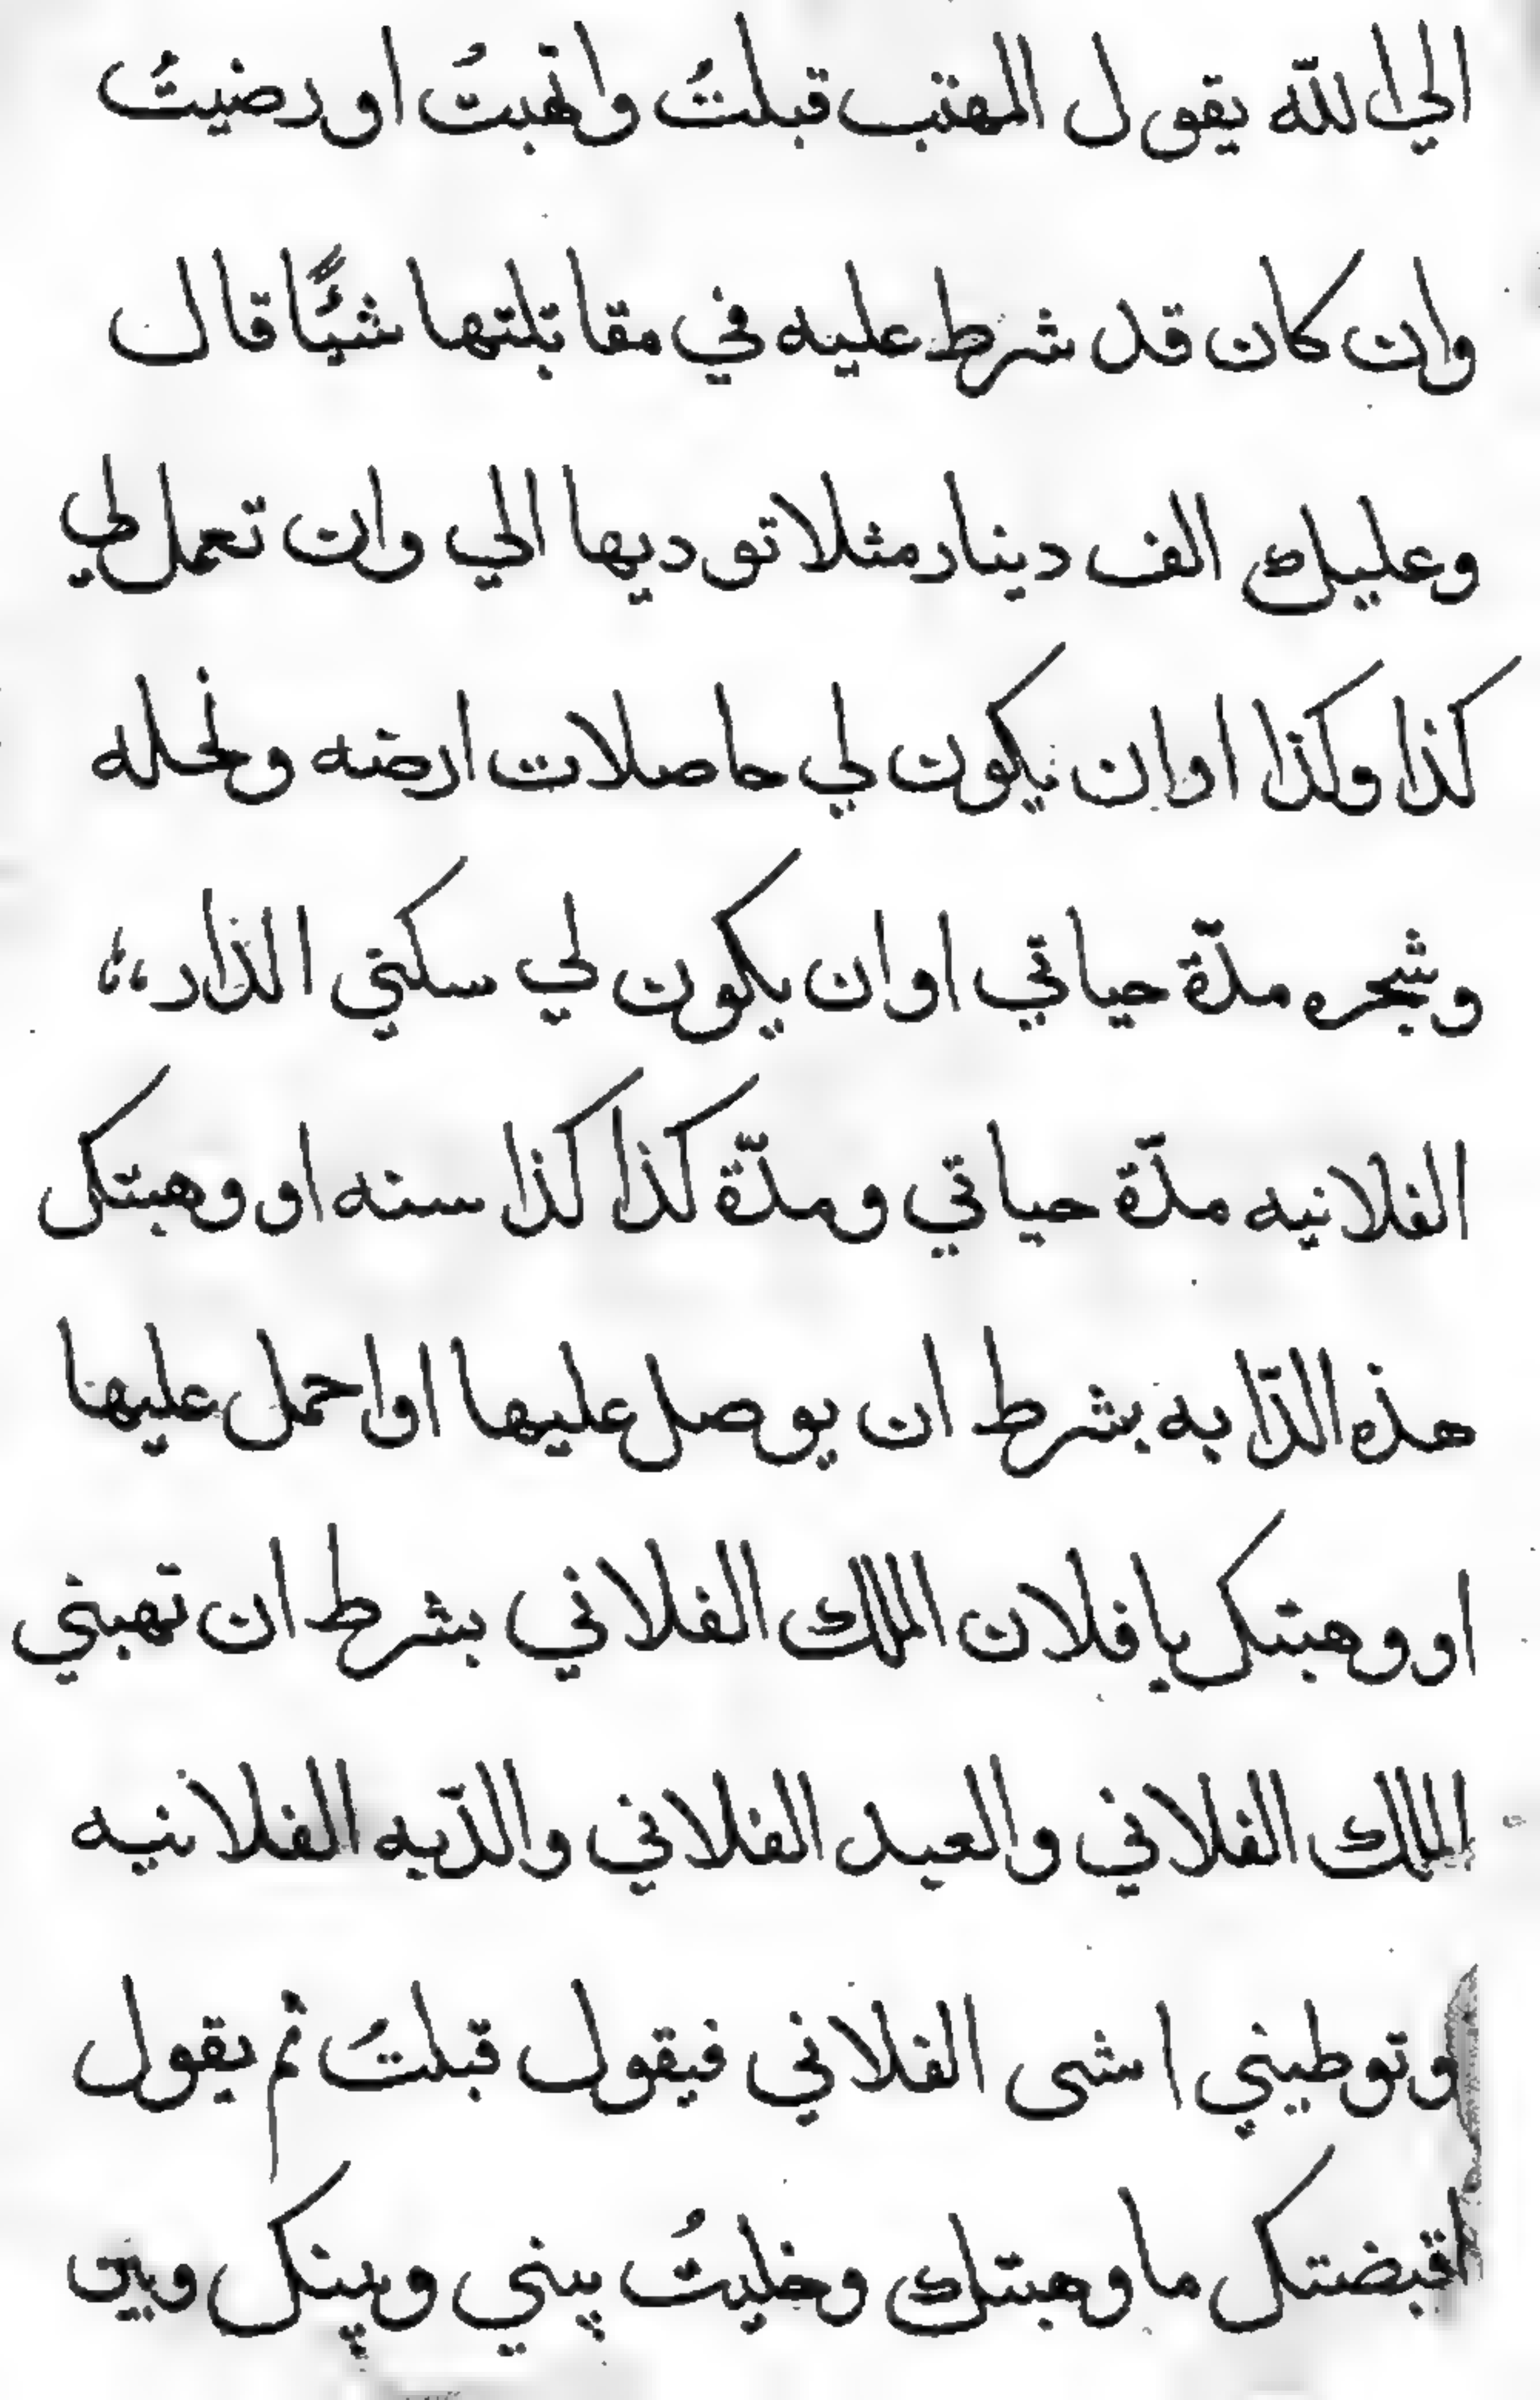 الي الله يقول المهتب قبلتُ واتهبتُ او رضيتُ
وان كان قد شرط عليه في مقاتلتها شيئًا قال
وعليك الف دينار مثلا توديها الي وان تعمل لي
كذا وكذا اوان يكون لي حاصلات ارضه ونخله
وشجره مدّة حياتي اوان يكون لي سكني الذار،،
الفلانيه مدّة حياتي ومدّة كذا كذا سنه او وهبتك
هذه الدّابه بشرط ان يوصل عليها او احمل عليها
او وهبتك يا فلان الملك الفلاني بشرط ان تهبني
الملك الفلاني والعبد الفلاني والدّبه الفلانيه
وتوطيني اشى الفلاني فيقول قبلتُ ثم يقول
اقبضتك ما وهبتك وخليتُ بيني وبينك وبين